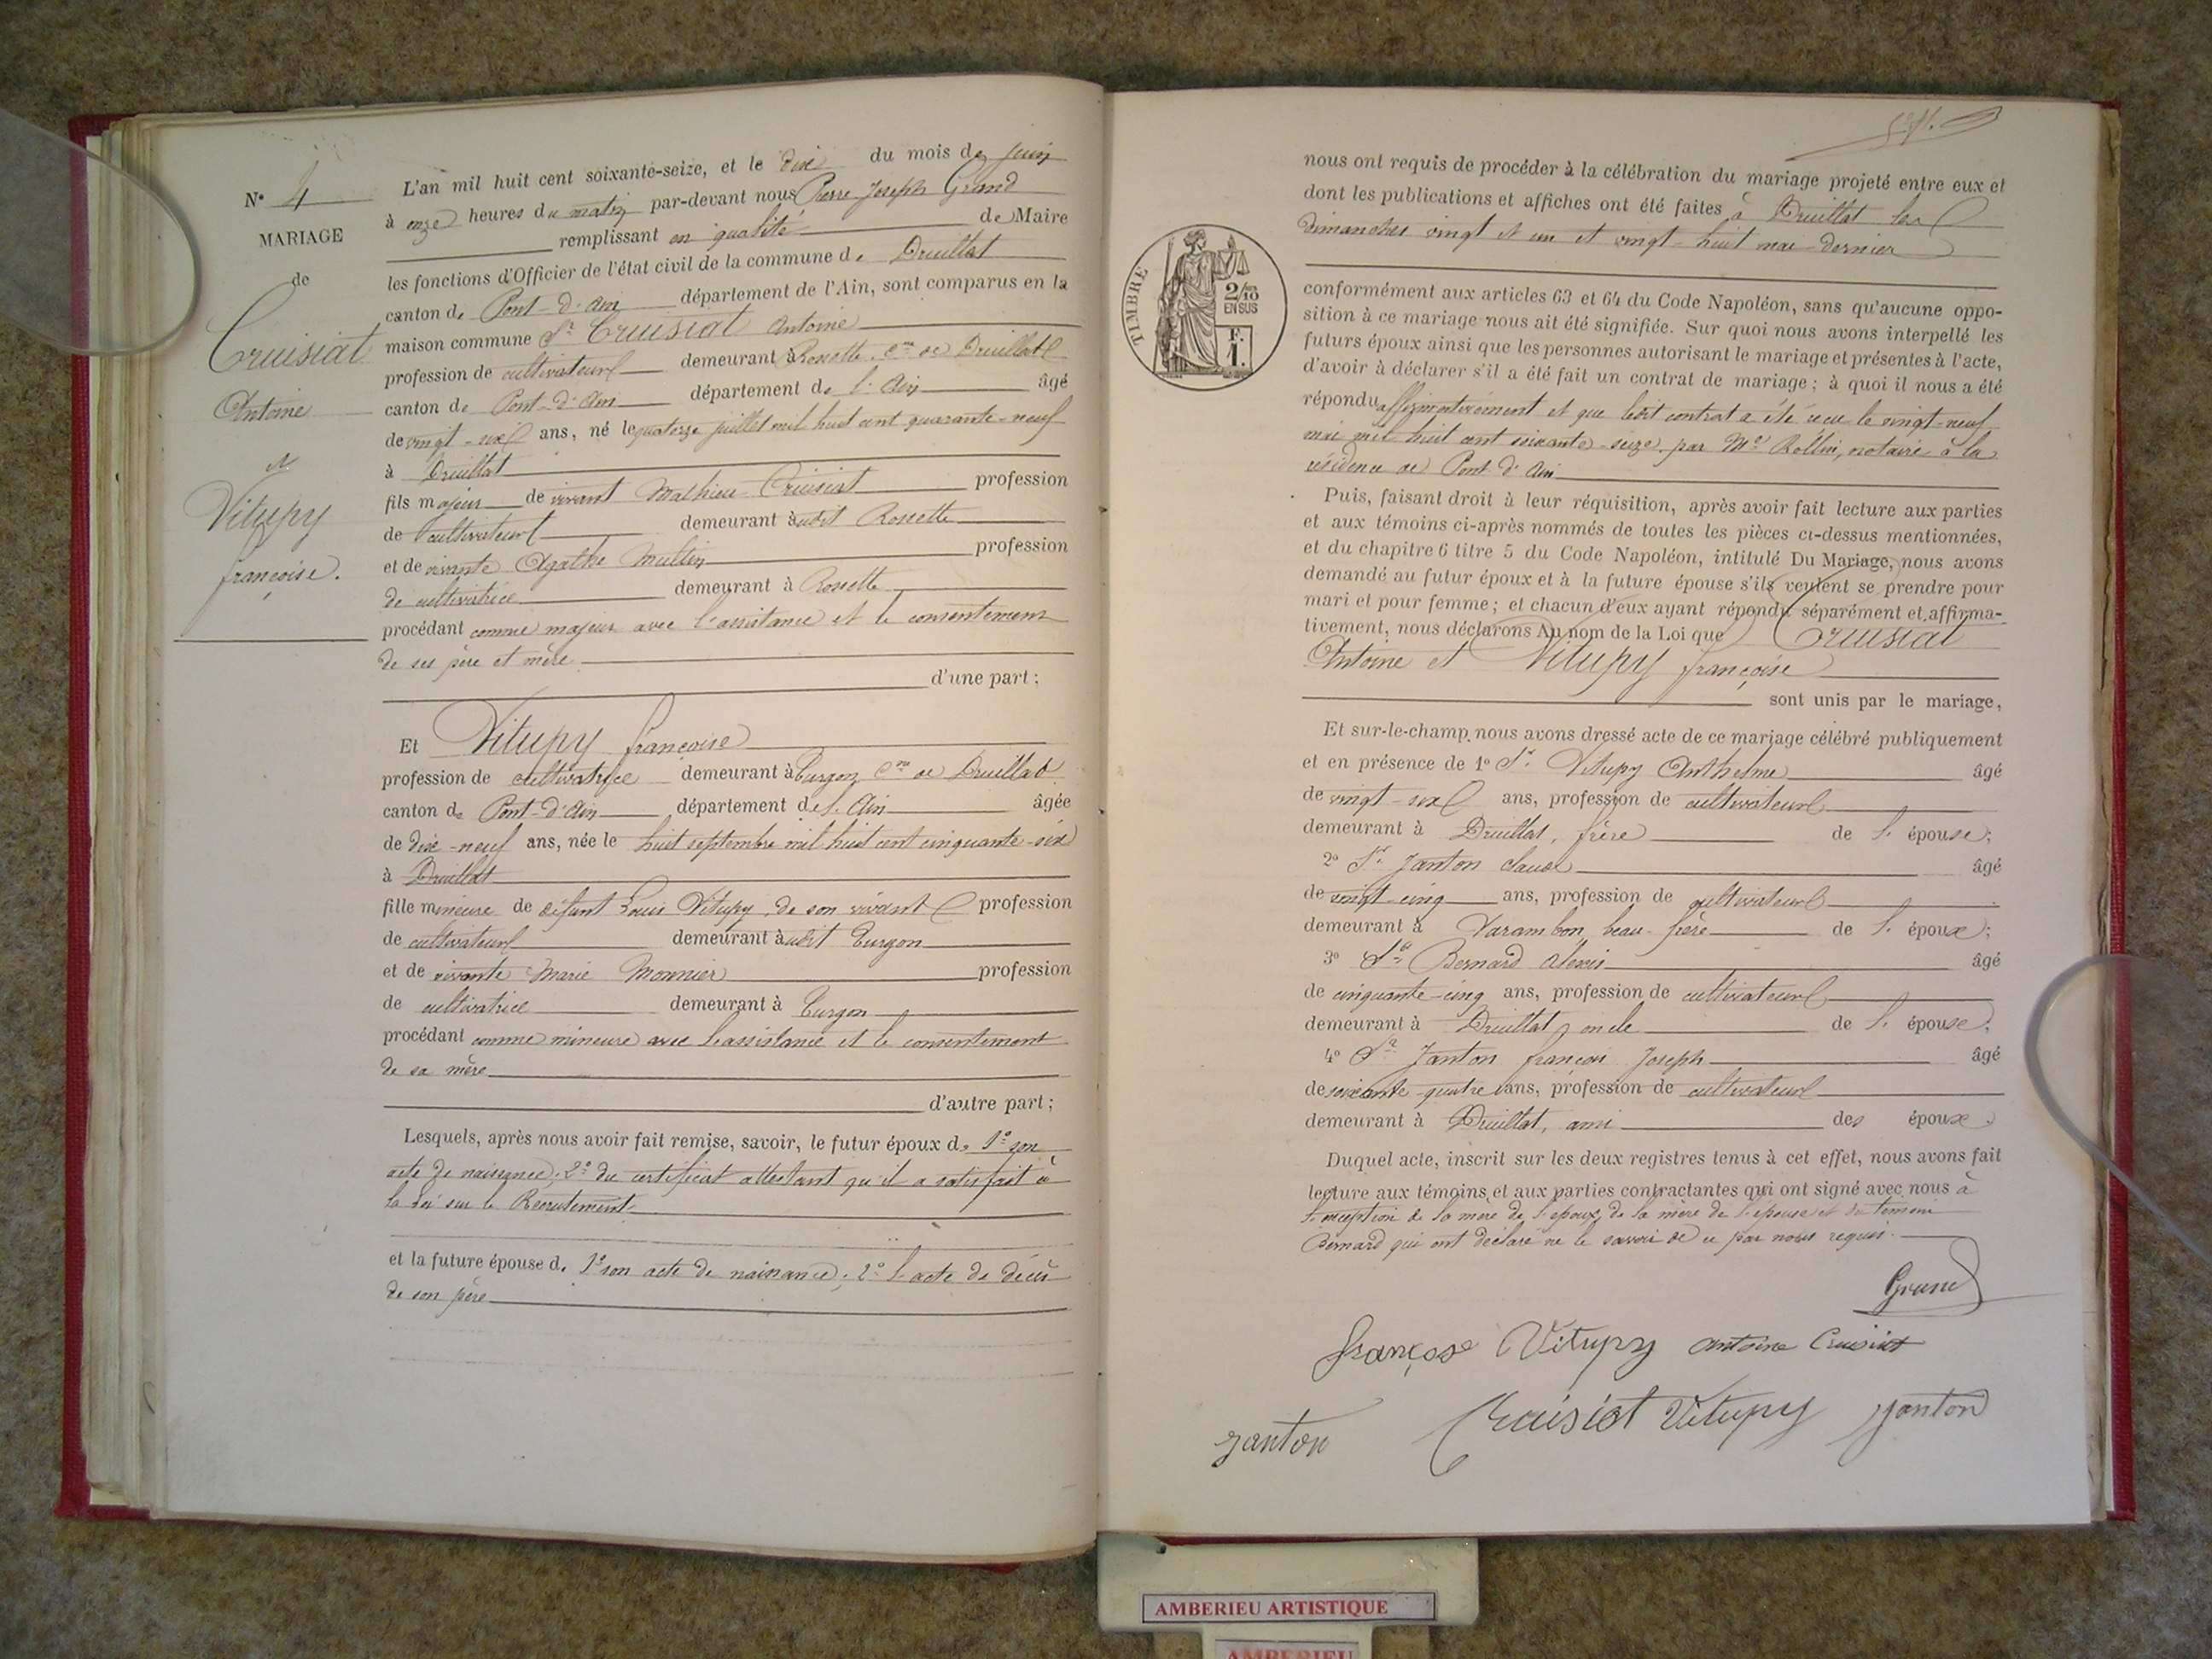 N° 4
MARIAGE
de
Cruisiat
Antoine
et
Vitupy
françoise.
L'an mil huit cent soixante-seize, et le dix du mois de juin
à onze heures du matin par-devant nous Pierre Joseph Grand
remplissant en qualité de Maire
les fonctions d'Officier de l'état civil de la commune de Druillat
canton de Pont-d'Ain département de l'Ain, sont comparus en la
maison commune Sr Cruisiat Antoine
profession de cultivateur demeurant à Rossette, Cne de Druillat
canton de Pont-d'Ain département de l'Ain âgé
de vingt-six ans, né le quatorze juillet mil huit cent quarante-neuf
à Druillat
fils majeur de vivant Mathieu Cruisiat profession
de cultivateur demeurant audit Rossette
et de vivante Agathe profession
de cultivatrice demeurant à Rossette
procédant comme majeur avec l'assistance et le consentement
de ses père et mère
d'une part;
Et Vitupy françoise
profession de cultivatrice demeurant à Turgon Cne de Druillat
canton de Pont-d'Ain département de l'Ain âgée
de dix-neuf ans, née le huit septembre mil huit cent cinquante-six
à Druillat
fille mineure de défunt Louis Vitupy, de son vivant profession
de cultivateur demeurant audit Turgon
et de vivante Marie Monnier profession
de cultivatrice demeurant à Turgon
procédant comme mineure avec l'assistance et le consentement
de sa mère
d'autre part;
Lesquels, après nous avoir fait remise, savoir, le futur époux de 1° son
acte de naissance; 2° du certificat attestant qu'il a satisfait à
la loi sur le Recrutement
et la future épouse de 1° son acte de naissance; 2° l'acte de décès
de son père
nous ont requis de procéder à la célébration du mariage projeté entre eux et
dont les publications et affiches ont été faites à Druillat les
dimanches vingt et un et vingt-huit mai dernier
TIMBRE
2/10
EN SUS
F.
1.
conformément aux articles 63 et 64 du Code Napoléon, sans qu'aucune oppo-
sition à ce mariage nous ait été signifiée. Sur quoi nous avons interpellé les
futurs époux ainsi que les personnes autorisant le mariage et présentes à l'acte,
d'avoir à déclarer s'il a été fait un contrat de mariage; à quoi il nous a été
répondu affirmativement et que ledit contrat a été reçu le vingt-neuf
mai mil huit cent soixante-seize par Me Rollin, notaire à la
résidence de Pont-d'Ain
Puis, faisant droit à leur réquisition, après avoir fait lecture aux parties
et aux témoins ci-après nommés de toutes les pièces ci-dessus mentionnées,
et du chapitre 6 titre 5 du Code Napoléon, intitulé Du Mariage, nous avons
demandé au futur époux et à la future épouse s'ils veulent se prendre pour
mari et pour femme; et chacun d'eux ayant répondu séparément et affirma-
tivement, nous déclarons Au nom de la Loi que Cruisiat
Antoine et Vitupy françoise
sont unis par le mariage,
Et sur-le-champ nous avons dressé acte de ce mariage célébré publiquement
et en présence de 1° Sr Vitupy Anthelme âgé
de vingt-six ans, profession de cultivateur
demeurant à Druillat, frère de l'épouse;
2° Sr Janton claude âgé
de vingt-cinq ans, profession de cultivateur
demeurant à Varambon beau-frère de l'époux;
3° Sr Bernard Alexis âgé
de cinquante-cinq ans, profession de cultivateur
demeurant à Druillat, oncle de l'épouse;
4° Sr Janton françois Joseph âgé
de soixante-quatre ans, profession de cultivateur
demeurant à Druillat, ami des époux.
Duquel acte, inscrit sur les deux registres tenus à cet effet, nous avons fait
lecture aux témoins et aux parties contractantes qui ont signé avec nous à
l'exception de la mère de l'époux, de la mère de l'épouse et du témoin
Bernard qui ont déclaré ne le savoir de ce par nous requis.
Grand
françoise Vitupy Antoine Cruisiat
Janton Cruisiat Vitupy Janton
AMBERIEU ARTISTIQUE
AMBERIEU